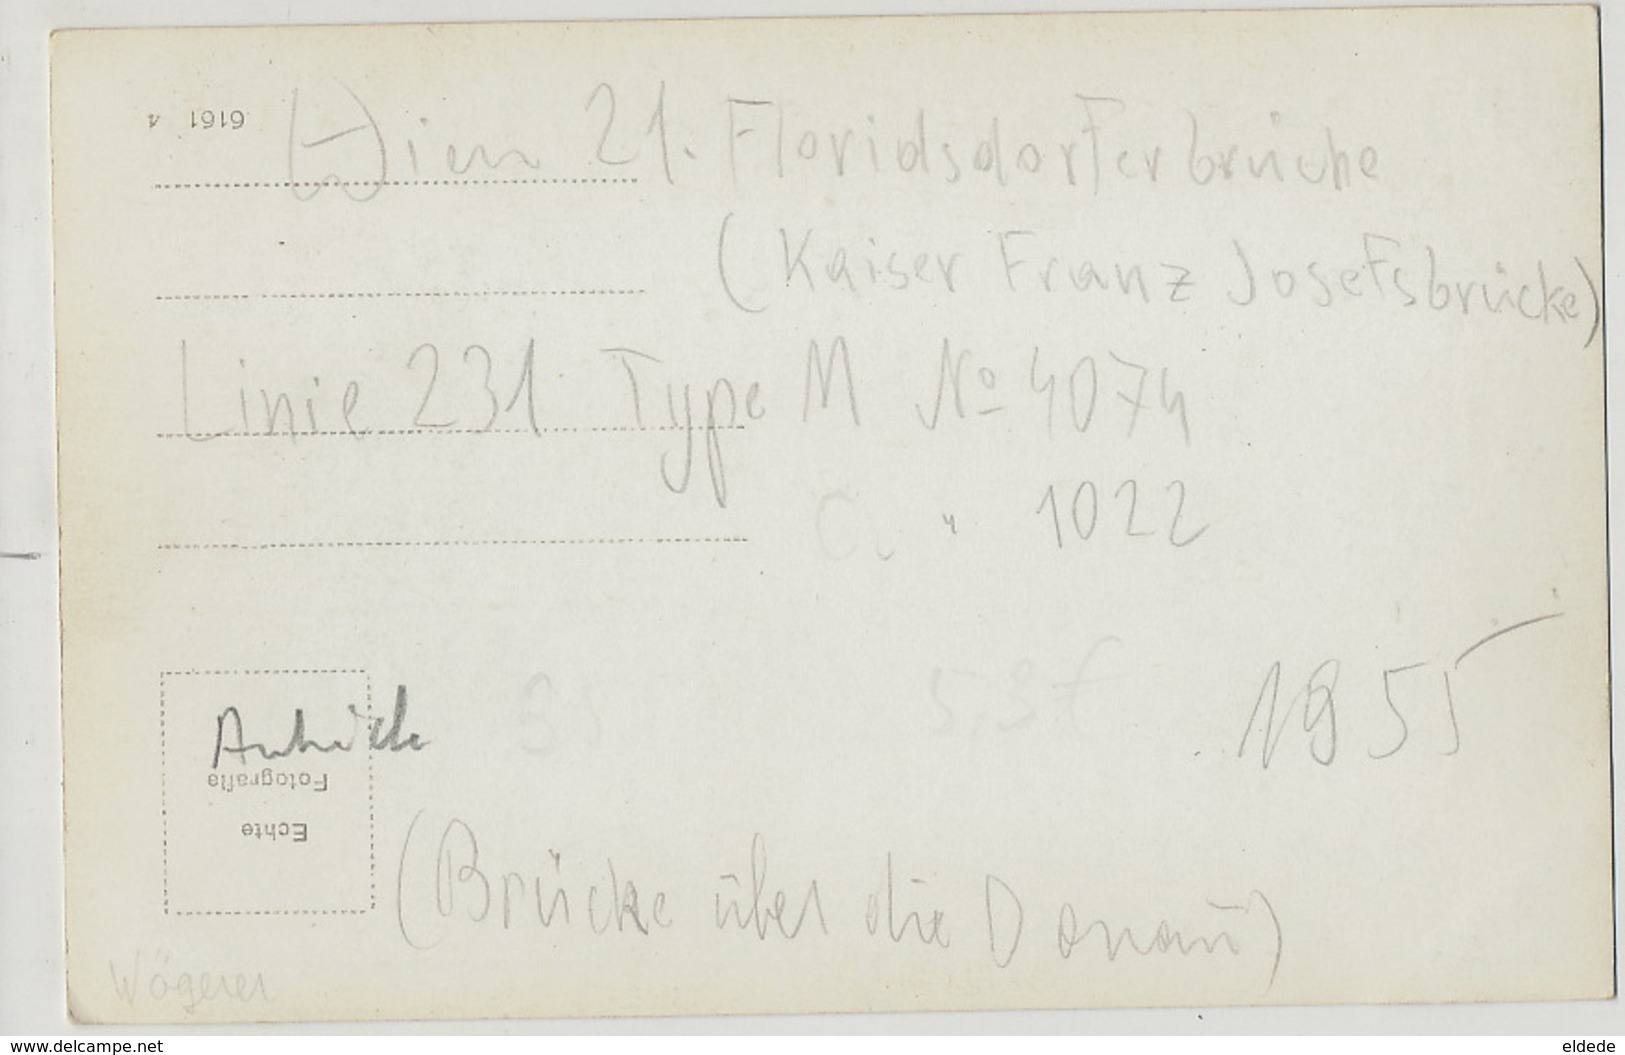 6161
Wien 21. Floridsdorferbrücke
(Kaiser Franz Josefsbrücke)
Linie 231 Type M No 4074
" 1022
1955
Fotografia
Echte
(Brücke über die Donau)
Wögerer
www.delcampe.net
eldede